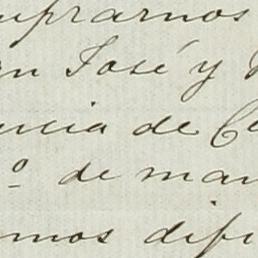 uprarnos
n José y
ucia de C
º de mar
mos difi